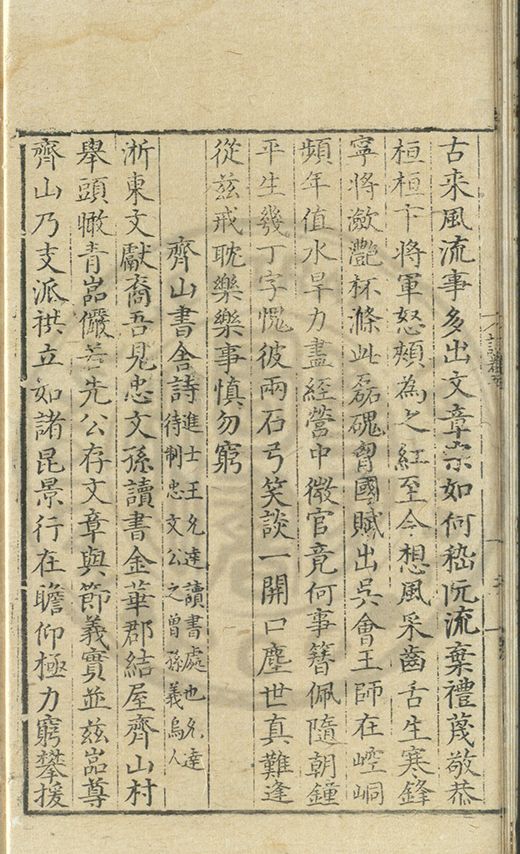 古来風流事多出文章宗如何嵇阮流棄禮蔑敬恭
桓桓卞將軍怒頰為之紅至今想風采齒舌生寒鋒
寧將瀲灧杯滌此磊磈胷國賦出吳會王師在崆峒
頻年值水旱力盡經營中微官竟何事簪佩隨朝鐘
平生幾丁字愧彼兩石弓笑談一開口塵世真難逢
從茲戒耽樂樂事慎勿窮
齊山書舍詩進士王允達讀書處也允達
待制忠文公之曾孫義烏人
淅東文獻裔吾見忠文孫讀書金華郡結屋齊山村
舉頭瞰青嵓儼若先公存文章與節義實並茲嵓尊
齊山乃支派拱立如諸昆景行在瞻仰極力窮攀援